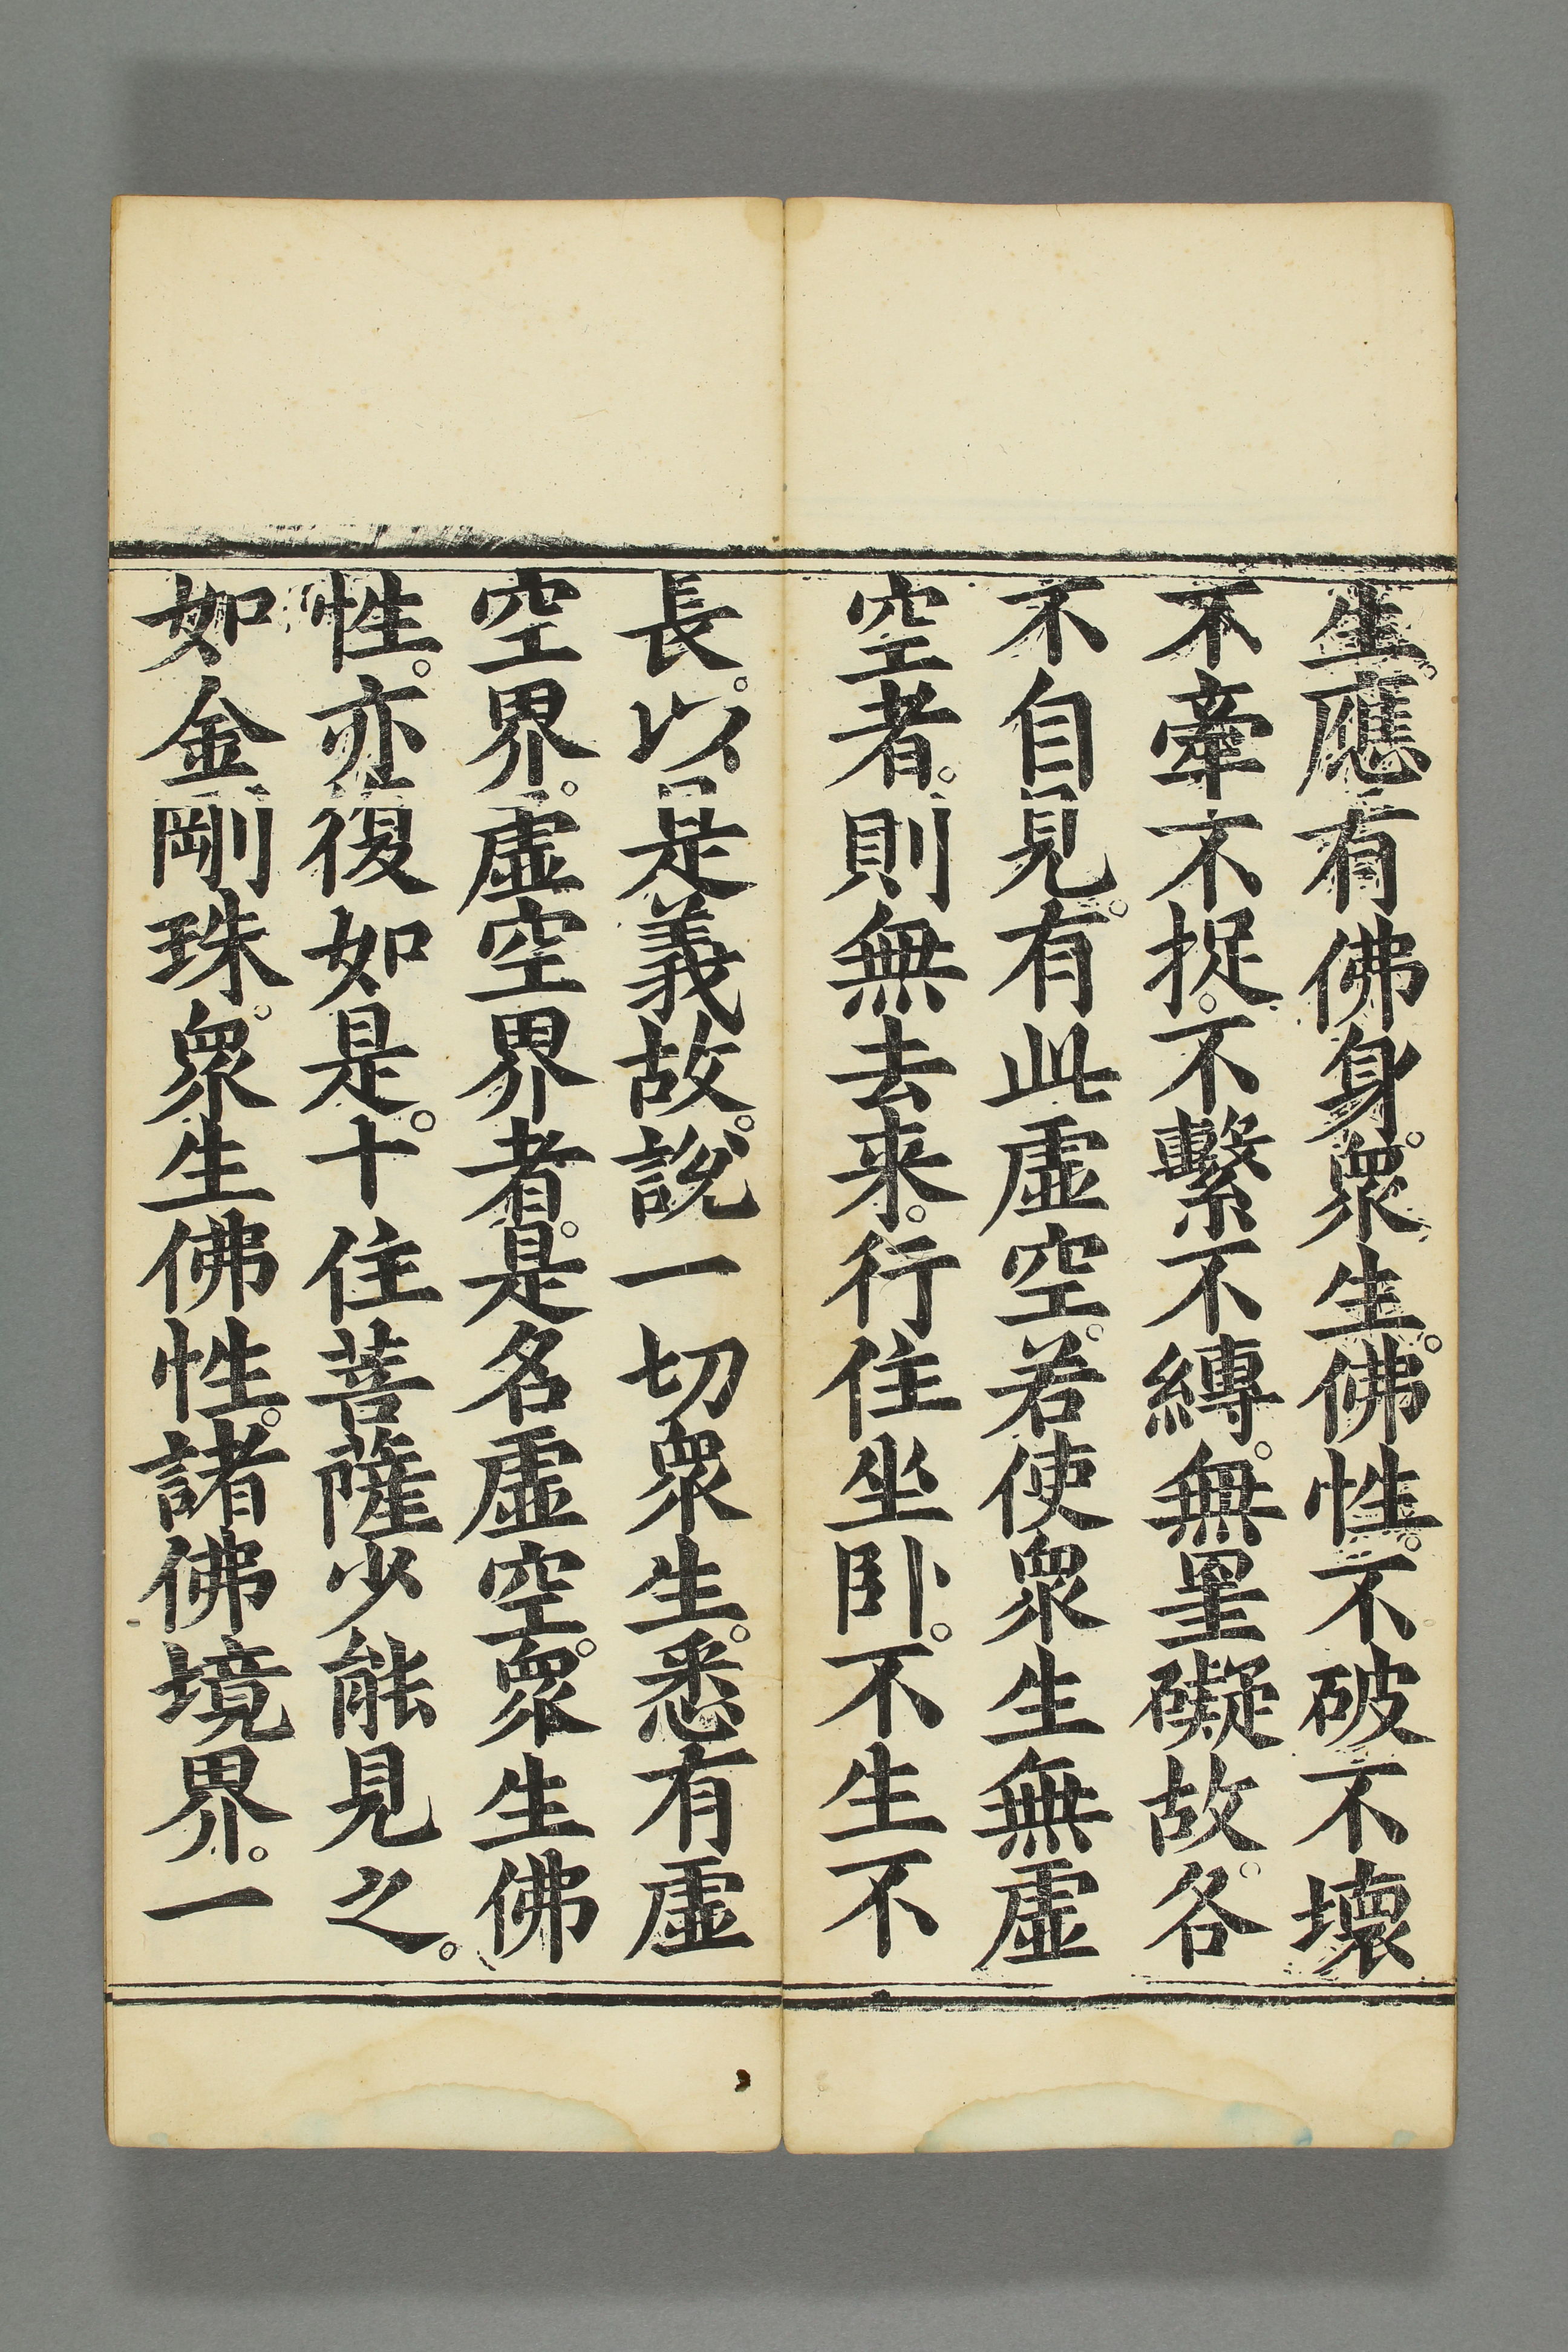 生。應有佛身。衆生。佛性。不破不壞
不牽不捉。不繫不縛。無罣礙故。各
不自見。有此虛空。若使衆生無虛
空者。則無去来。行住坐卧。不生不
長。以是義故。說一切衆生。悉有虛
空界。虛空界者。是名虛空。衆生佛
性。亦復如是。十住菩薩少能見之。
如金剛珠。衆生佛性。諸佛境界。一